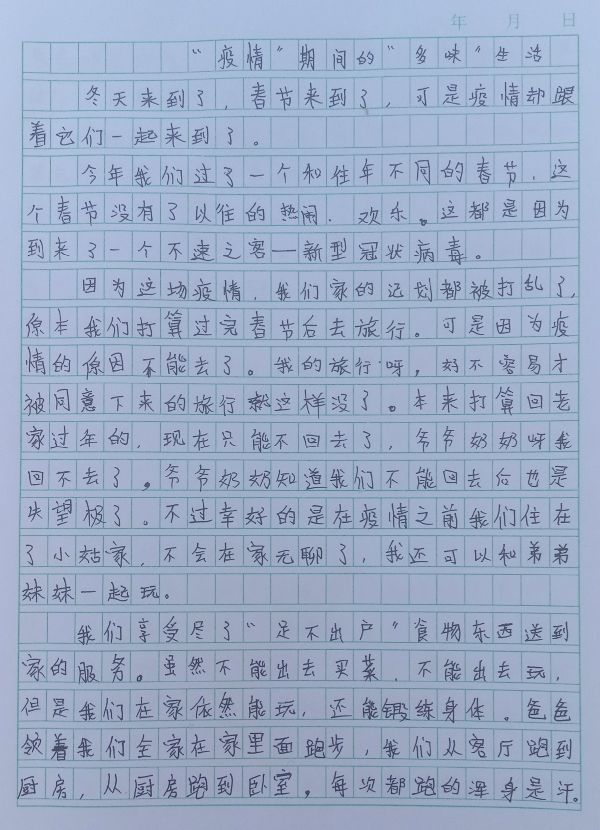 年 月 日
“疫情”期间的“多味”生活
冬天来到了，春节来到了，可是疫情却跟
着它们一起来到了。
今年我们过了一个和往年不同的春节，这
个春节没有了以往的热闹、欢乐。这都是因为
到来了一个不速之客—新型冠状病毒。
因为这场疫情，我们家的计划都被打乱了，
原本我们打算过完春节后去旅行。可是因为疫
情的原因不能去了。我的旅行呀，好不容易才
被同意下来的旅行就这样没了。本来打算回老
家过年的，现在只能不回去了，爷爷奶奶呀我
回不去了。爷爷奶奶知道我们不能回去后也是
失望极了。不过幸好的是在疫情之前我们住在
了小姑家，不会在家无聊了，我还可以和弟弟
妹妹一起玩。
我们享受尽了“足不出户”食物东西送到
家的服务。虽然不能出去买菜，不能出去玩，
但是我们在家依然能玩，还能锻练身体。爸爸
领着我们全家在家里面跑步，我们从客厅跑到
厨房，从厨房跑到卧室，每次都跑的浑身是汗。